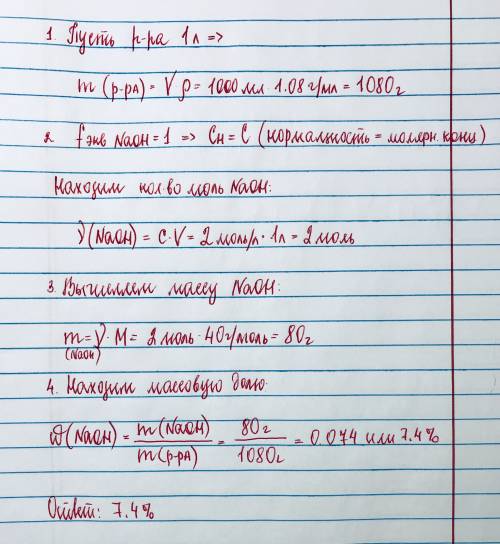 1. Пусть р-ра 1л =>
m (р-ра) = V · ρ = 1000 мл · 1.08 г/мл = 1080г
2. fэкв NaOH = 1 => Cн = C (нормальность = молярн. конц)
Находим кол. во моль NaOH:
ν(NaOH) = C · V = 2 моль/л · 1л = 2 моль
3. Вычисляем массу NaOH:
m (NaOH) = ν · M = 2 моль · 40г/моль = 80г
4. Находим массовую долю.
ω(NaOH) = m(NaOH) / m(р-ра) = 80г / 1080г = 0.074 или 7.4%
Ответ: 7.4%